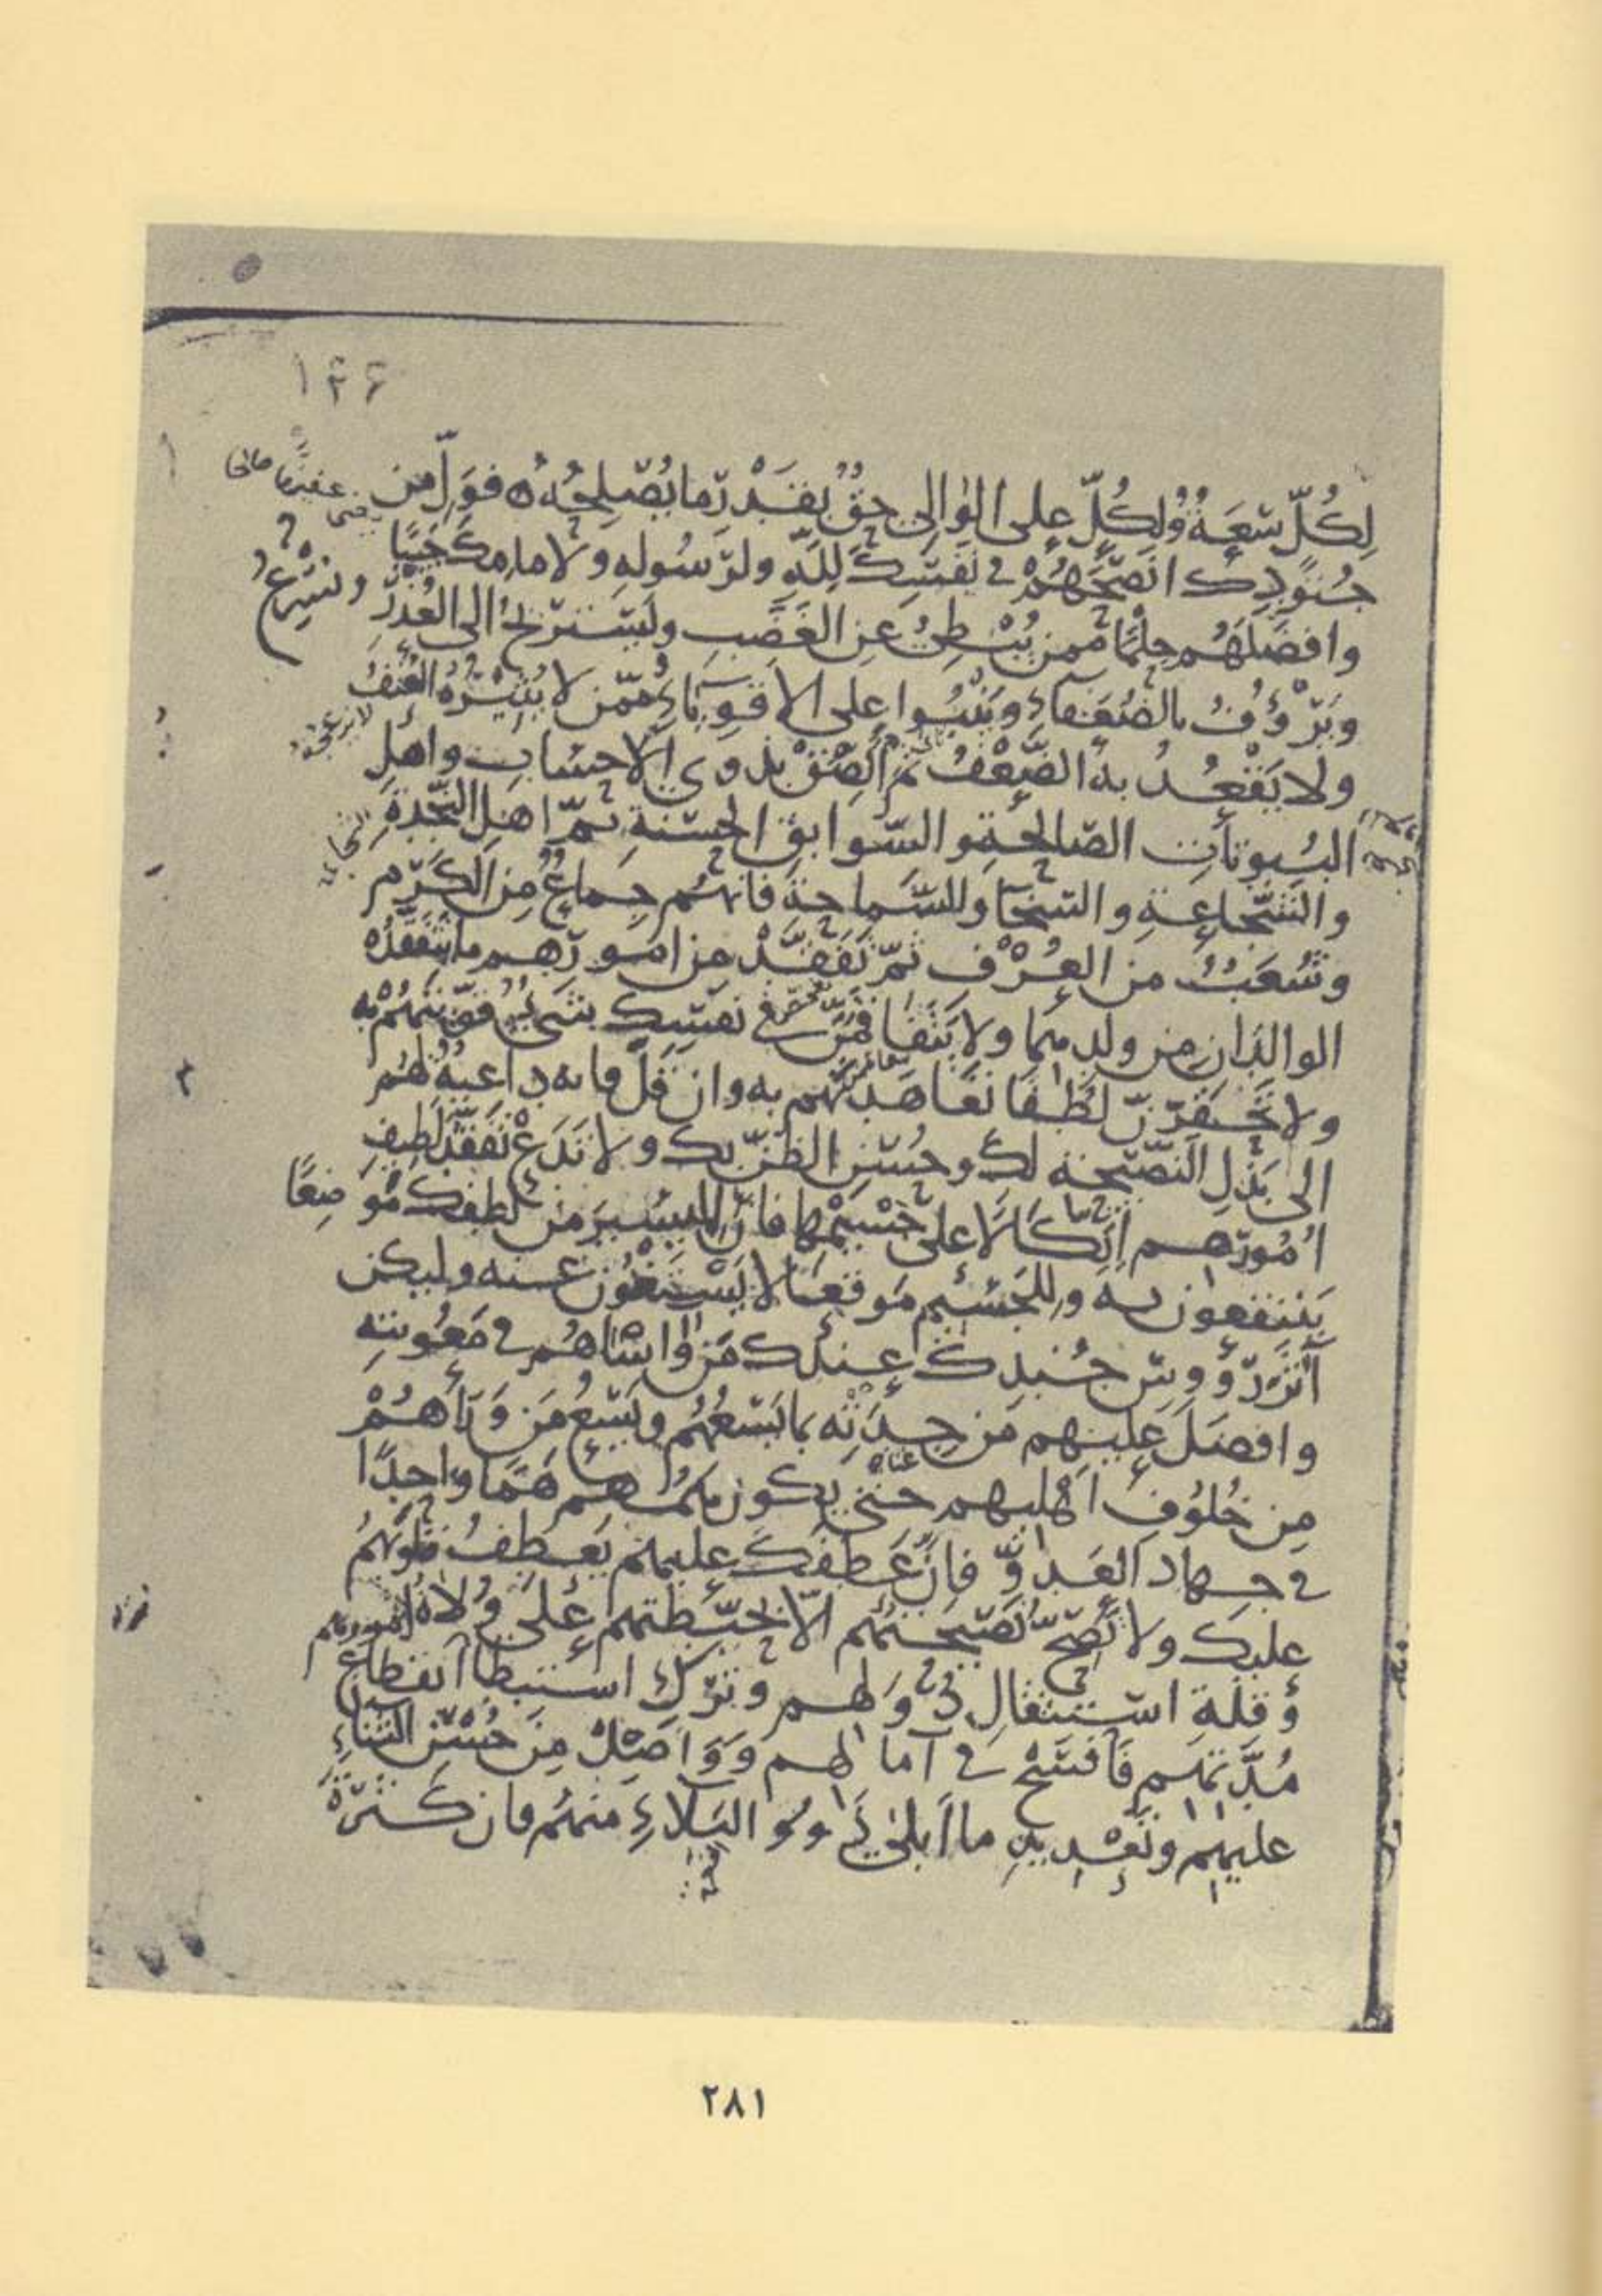 ١٤۶
لِكُلٍّ سَعَةٌ وَلِكُلٍّ على الوالى حَقٌّ بقَدْرِ ما يُصْلِحُهُ ه فوَلِّ من
جُنودِكَ انصَحَهُمْ فى نفسِكَ لِلّهِ ولرسُولِهِ ولامامِكَ جَيْبًا
وافضَلَهُم حِلْمًا ممن يُبْطِئُ عن الغَضَبِ ويَسْتَرِيحُ الى العُذْرِ
ويَرْؤُفُ بالضُعَفَاءِ ويَنْبُوا على الاقوِيَاءِ ممّن لا يُثِيْرُهُ العُنفُ
ولا يَقْعُدُ به الضَّعْفُ ثم الصَقْ بذوى الاحساب واهلِ
البُيوتاتِ الصّالحةِ والسّوابقِ الحسَنةِ ثمّ اهل النّجْدةِ
والشّجاعةِ والسّخآ والسَّماحةِ فانهُم جِماعٌ من الكرَمِ
وشُعَبٌ من العُرْفِ ثمّ تَفَقَّدْ من امورِهم ما يتفَقَّدُه
الوالدانِ من ولدِهِما ولا يَتَفَاقَمَنَّ فى نفسِك شىءٌ قوّيتَهُمْ به
ولا تَحْقِرَنّ لُطْفًا تَعَاهَدتَهُم به وان قَلّ فانه داعِيَةٌ لهُم
الى بَذْلِ النَّصيحة لك وحُسْنِ الظنّ بك ولا تَدَعْ تَفَقُّدَ لطِيفِ
اُمُورِهم اتّكالا على جَسِيْمِها فانّ لليَسِيرِ من لُطفِك مَوضِعًا
يَنْتَفِعون به وللجَسِيمِ مَوقعًا لا يَسْتَغْنُون عنه وليكن
آثَرُ رؤوسِ جُنْدِكَ عندك مَن واساهُم فى مَعُونتِهِ
وافضَلَ عليهم من جِدَتِه بما يَسَعُهُم ويَسَعُ مَن وَرَآهُمْ
مِن خُلُوفِ اَهليهم حتّى يكون هَمُّهُم هَمًّا واحِدًا
فى جهاد العَدوِّ فانّ عَطفَكَ عليهم يَعطِفُ قلوبَهُم
عليك ولا تَصِحُّ نَصيحتُهُم الّا بحِيطَتِهم على وُلاةِ امورهم
وَقلّةِ استثقالِ دُوَلهم وتركِ استبطآ انقطاعِ
مُدّتهم فَافسَحْ فى آمالهم وَوَاصِلْ مِن حُسْنِ الثناءِ
عليهم وتَعْدِيدِ ما اَبلى ذَوُو البَلاءِ منهُم فان كَثرةَ
٢٨١